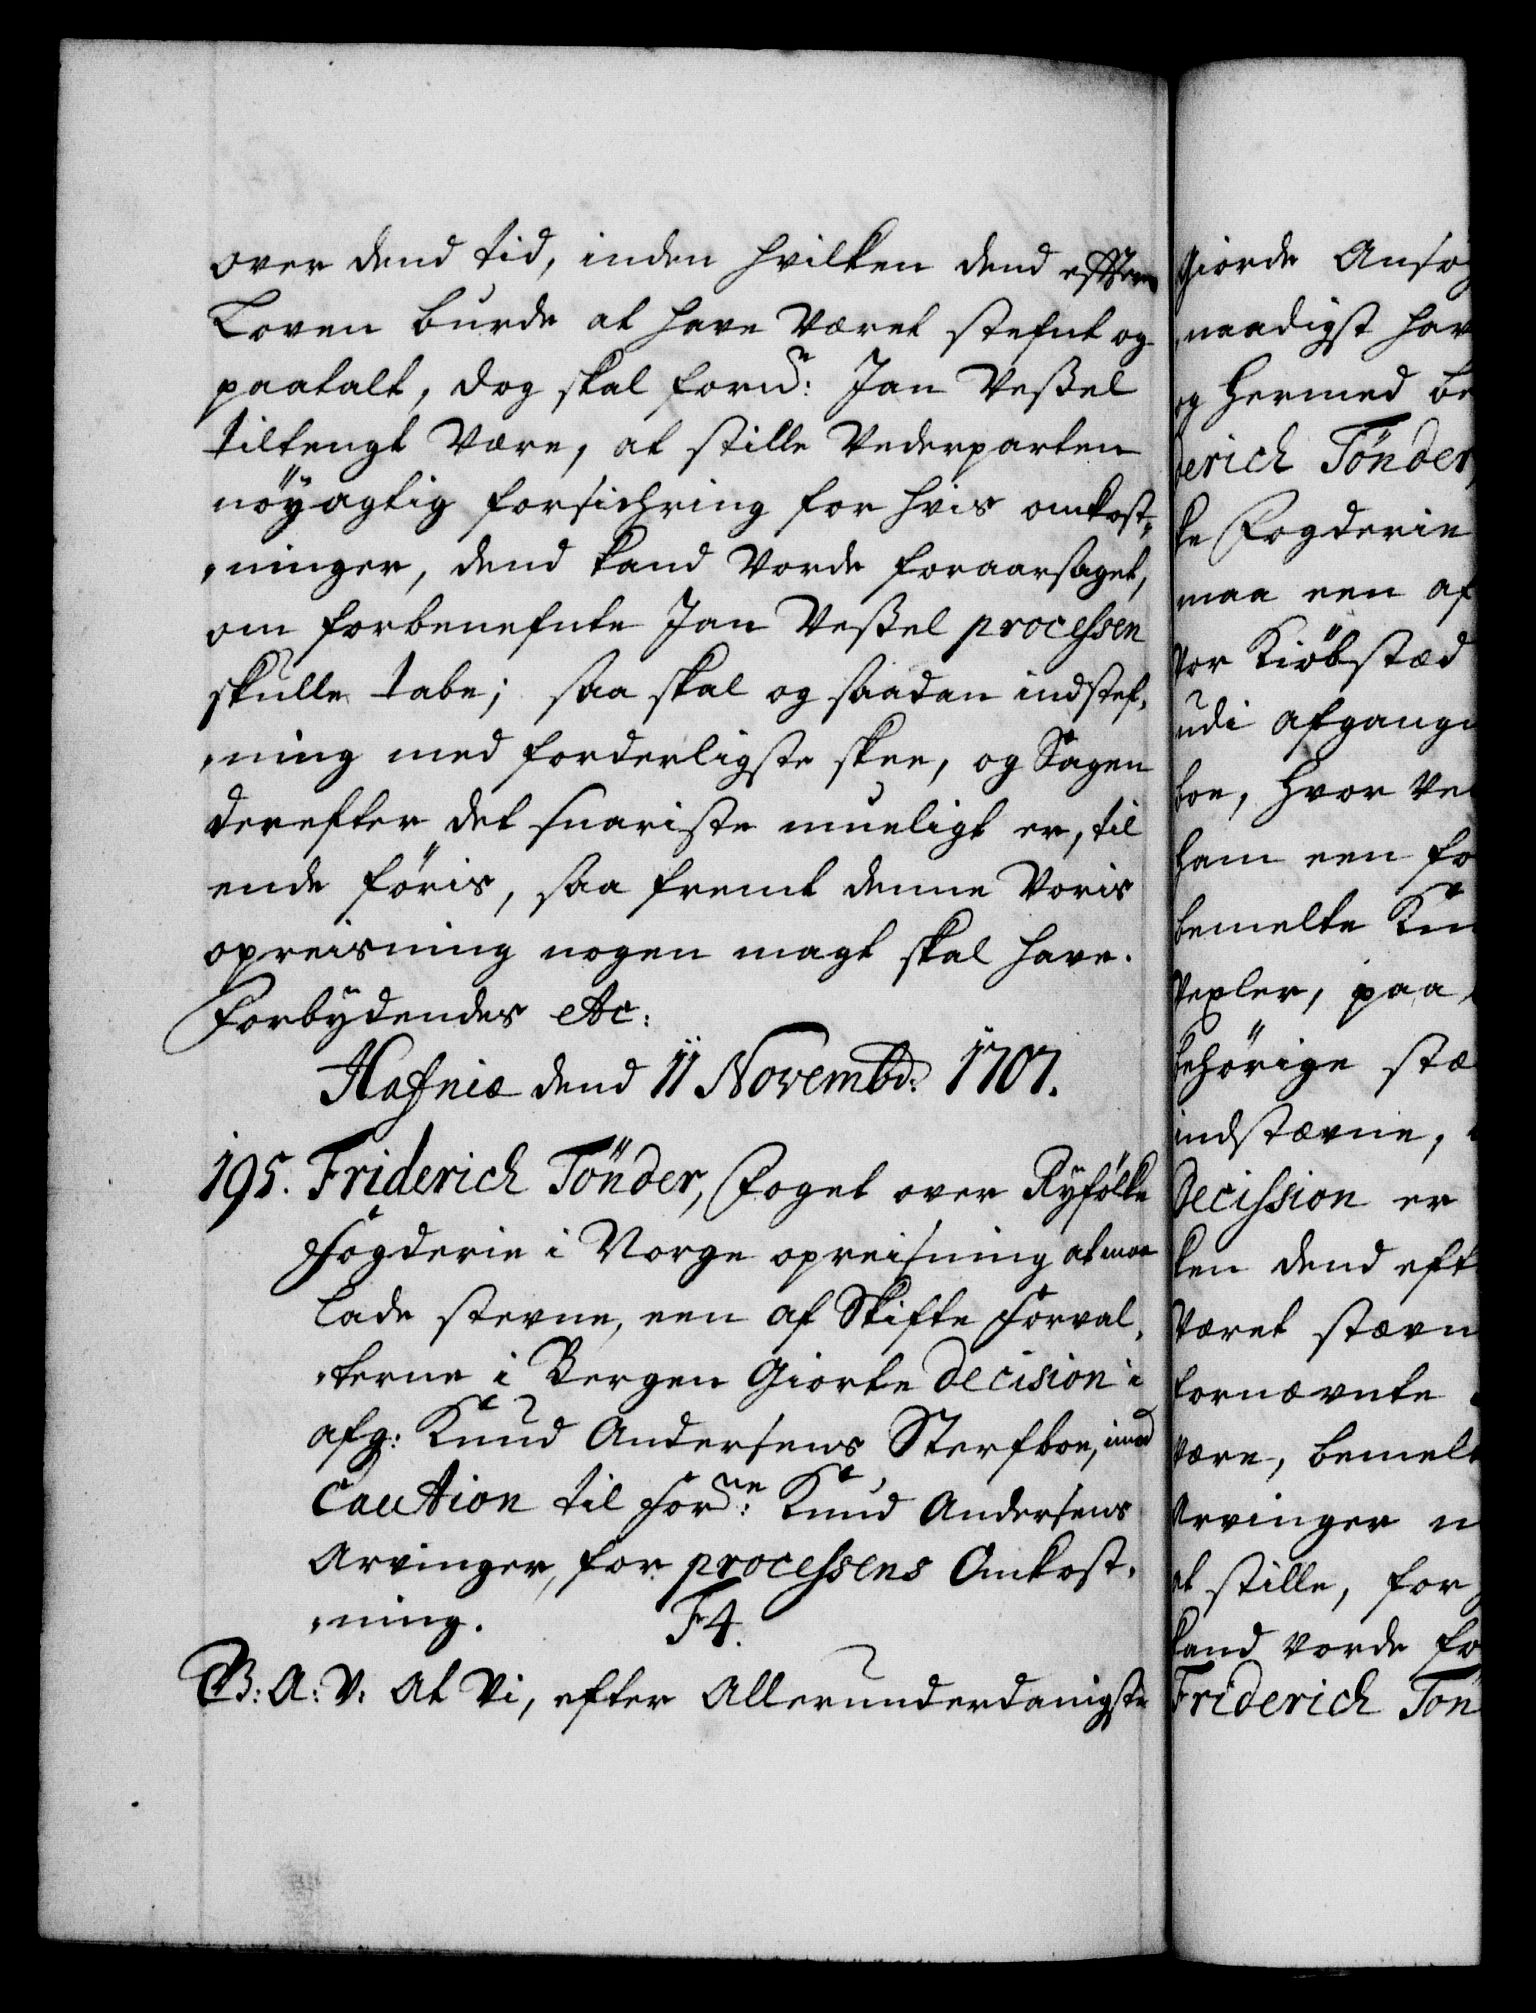 over dend tid, inden hvilken dend effter
Loven burde at have været stefnt og
paatalt, dog skal fornd: Jan Veßel
tiltengt være, at stille Vederparten
nöyagtig forsichring for hvis omkost,
,ninger, dend kand vorde foraarsaget,
om forbenefnte Jan Veßel processen
skulle tabe; saa skal og saadan indstef,
,ning med forderligste skee, og Sagen
derefter det snariste mueligt er, til
ende föris, saa fremt denne Voris
opreisning nogen magt skal have.
Forbydendes etc:
Hafniæ dend 11 Novembr: 1707.
195. Friderich Tönder, Foget over Ryfölke
Fogderie i Norge opreisning at maa
lade stevne, een af Skifte Forval,
,terne i Bergen Giorte decision i
afg: Knud Andersens Sterfboe, imod
Caution til Forne: Knud Andersens
Arvinger, for processens Omkost,
,ning. F4.
G.B: A: V: At Vi, efter Allerunderdanigste
giorde Ansøg
,naadigst hav
og hermed be
derich Tönder,
ke Fogderie
maa een af
vor Kiöbstæd
udi afgangn
boe, hvor ve
ham een fo
bemelte Knu
Vexler, paa
behörige stæ
indstævne,
Decission er
ken dend eft
været stævn
fornævnte
være, bemelt
Arvinger n
at stille, for
kand vorde fo
Friderich Tön